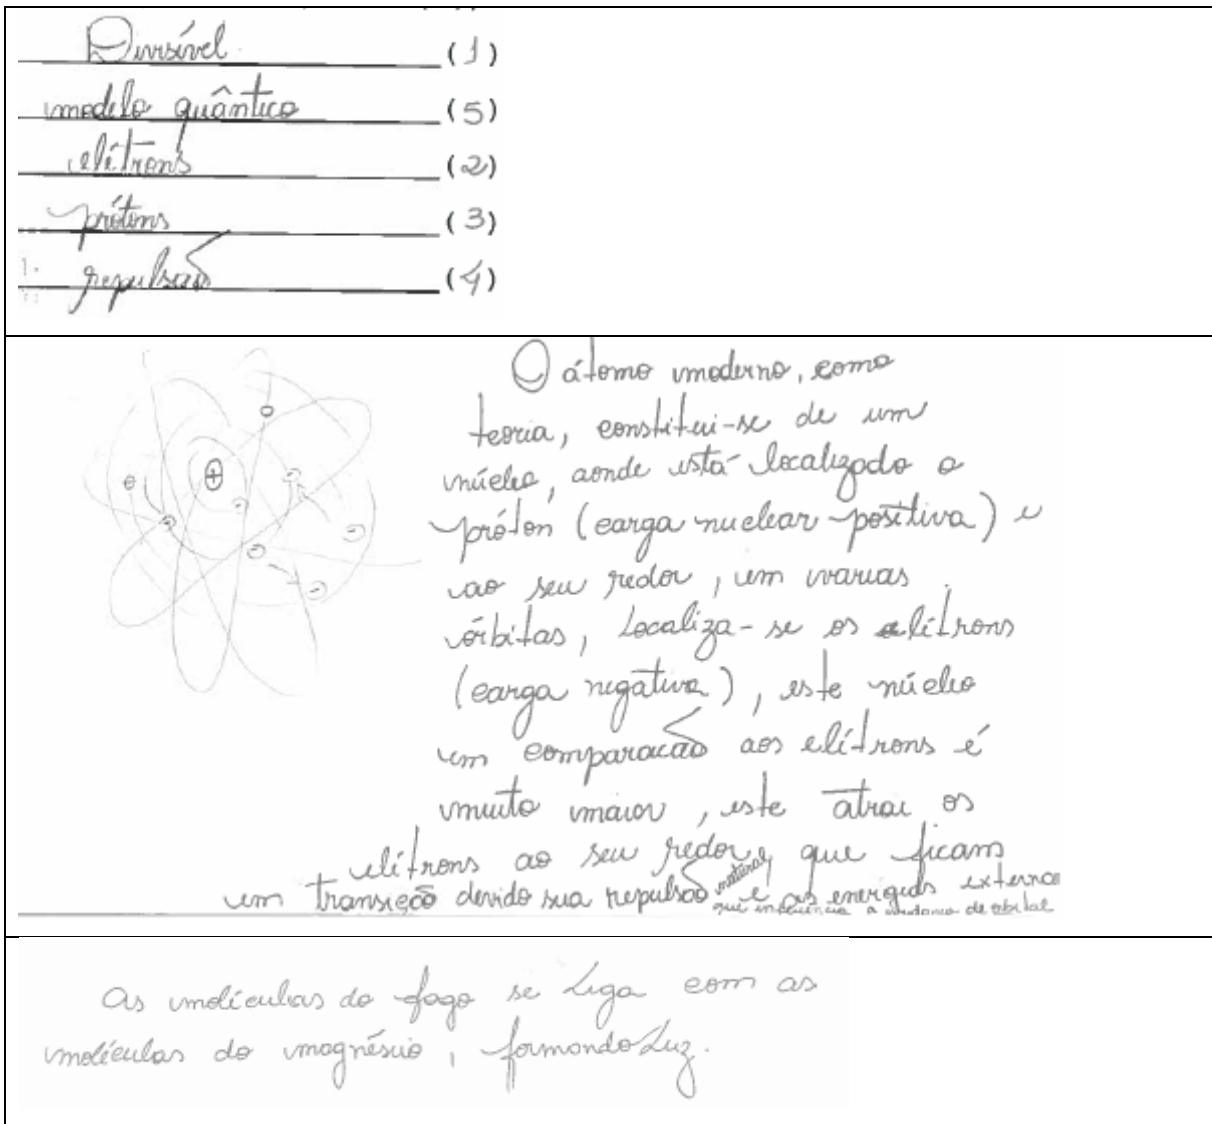 Divisível (1)
modelo quântico (5)
elétrons (2)
prótons (3)
repulsão (4)
O átomo moderno, como
teoria, constitui-se de um
núcleo, aonde está localizado o
próton (carga nuclear positiva) e
ao seu redor, em varias
órbitas, Localiza-se os elétrons
(carga negativa), este núcleo
em comparacão aos elétrons é
muito maior, este atrai os
elétrons ao seu redor, que ficam
em transição devido sua repulsão natural e as energias externa
que influência a mudança de orbital
As moléculas do fogo se Liga com as
moléculas do magnésio, formando Luz.